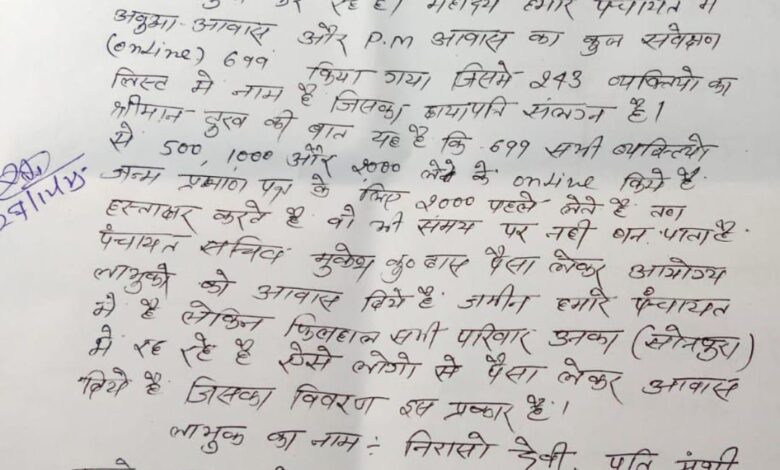 रहे है। महोदय हमारे पंचायत में
अबुआ-आवास और P.M आवास का कुल सर्वेक्षण
(online) 699 किया गया जिसमे 243 व्यक्तियो का
लिस्ट मे नाम है जिसका छायाप्रति संलग्न है।
श्रीमान-दुःख की बात यह है कि 699 सभी व्यक्तियो
से 500, 1000 और 2000 लेके के online किये है.
जन्म प्रमाण पत्र के लिए 2000 पहले लेते है तब
हस्ताक्षर करते है वो भी समय पर नही बन पाता है.
पंचायत सचिव मुकेश कु० दास पैसा लेकर अयोग्य
लाभुको को आवास दिये है. जमीन हमारे पंचायत
मे है लेकिन फिलहाल सभी परिवार उनका (सोनपुरा)
मे रह रहे है ऐसे लोगो से पैसा लेकर आवास
दिये है जिसका विवरण इस प्रकार है।
लाभुक का नाम :- निरासो देवी, पति मुंशी